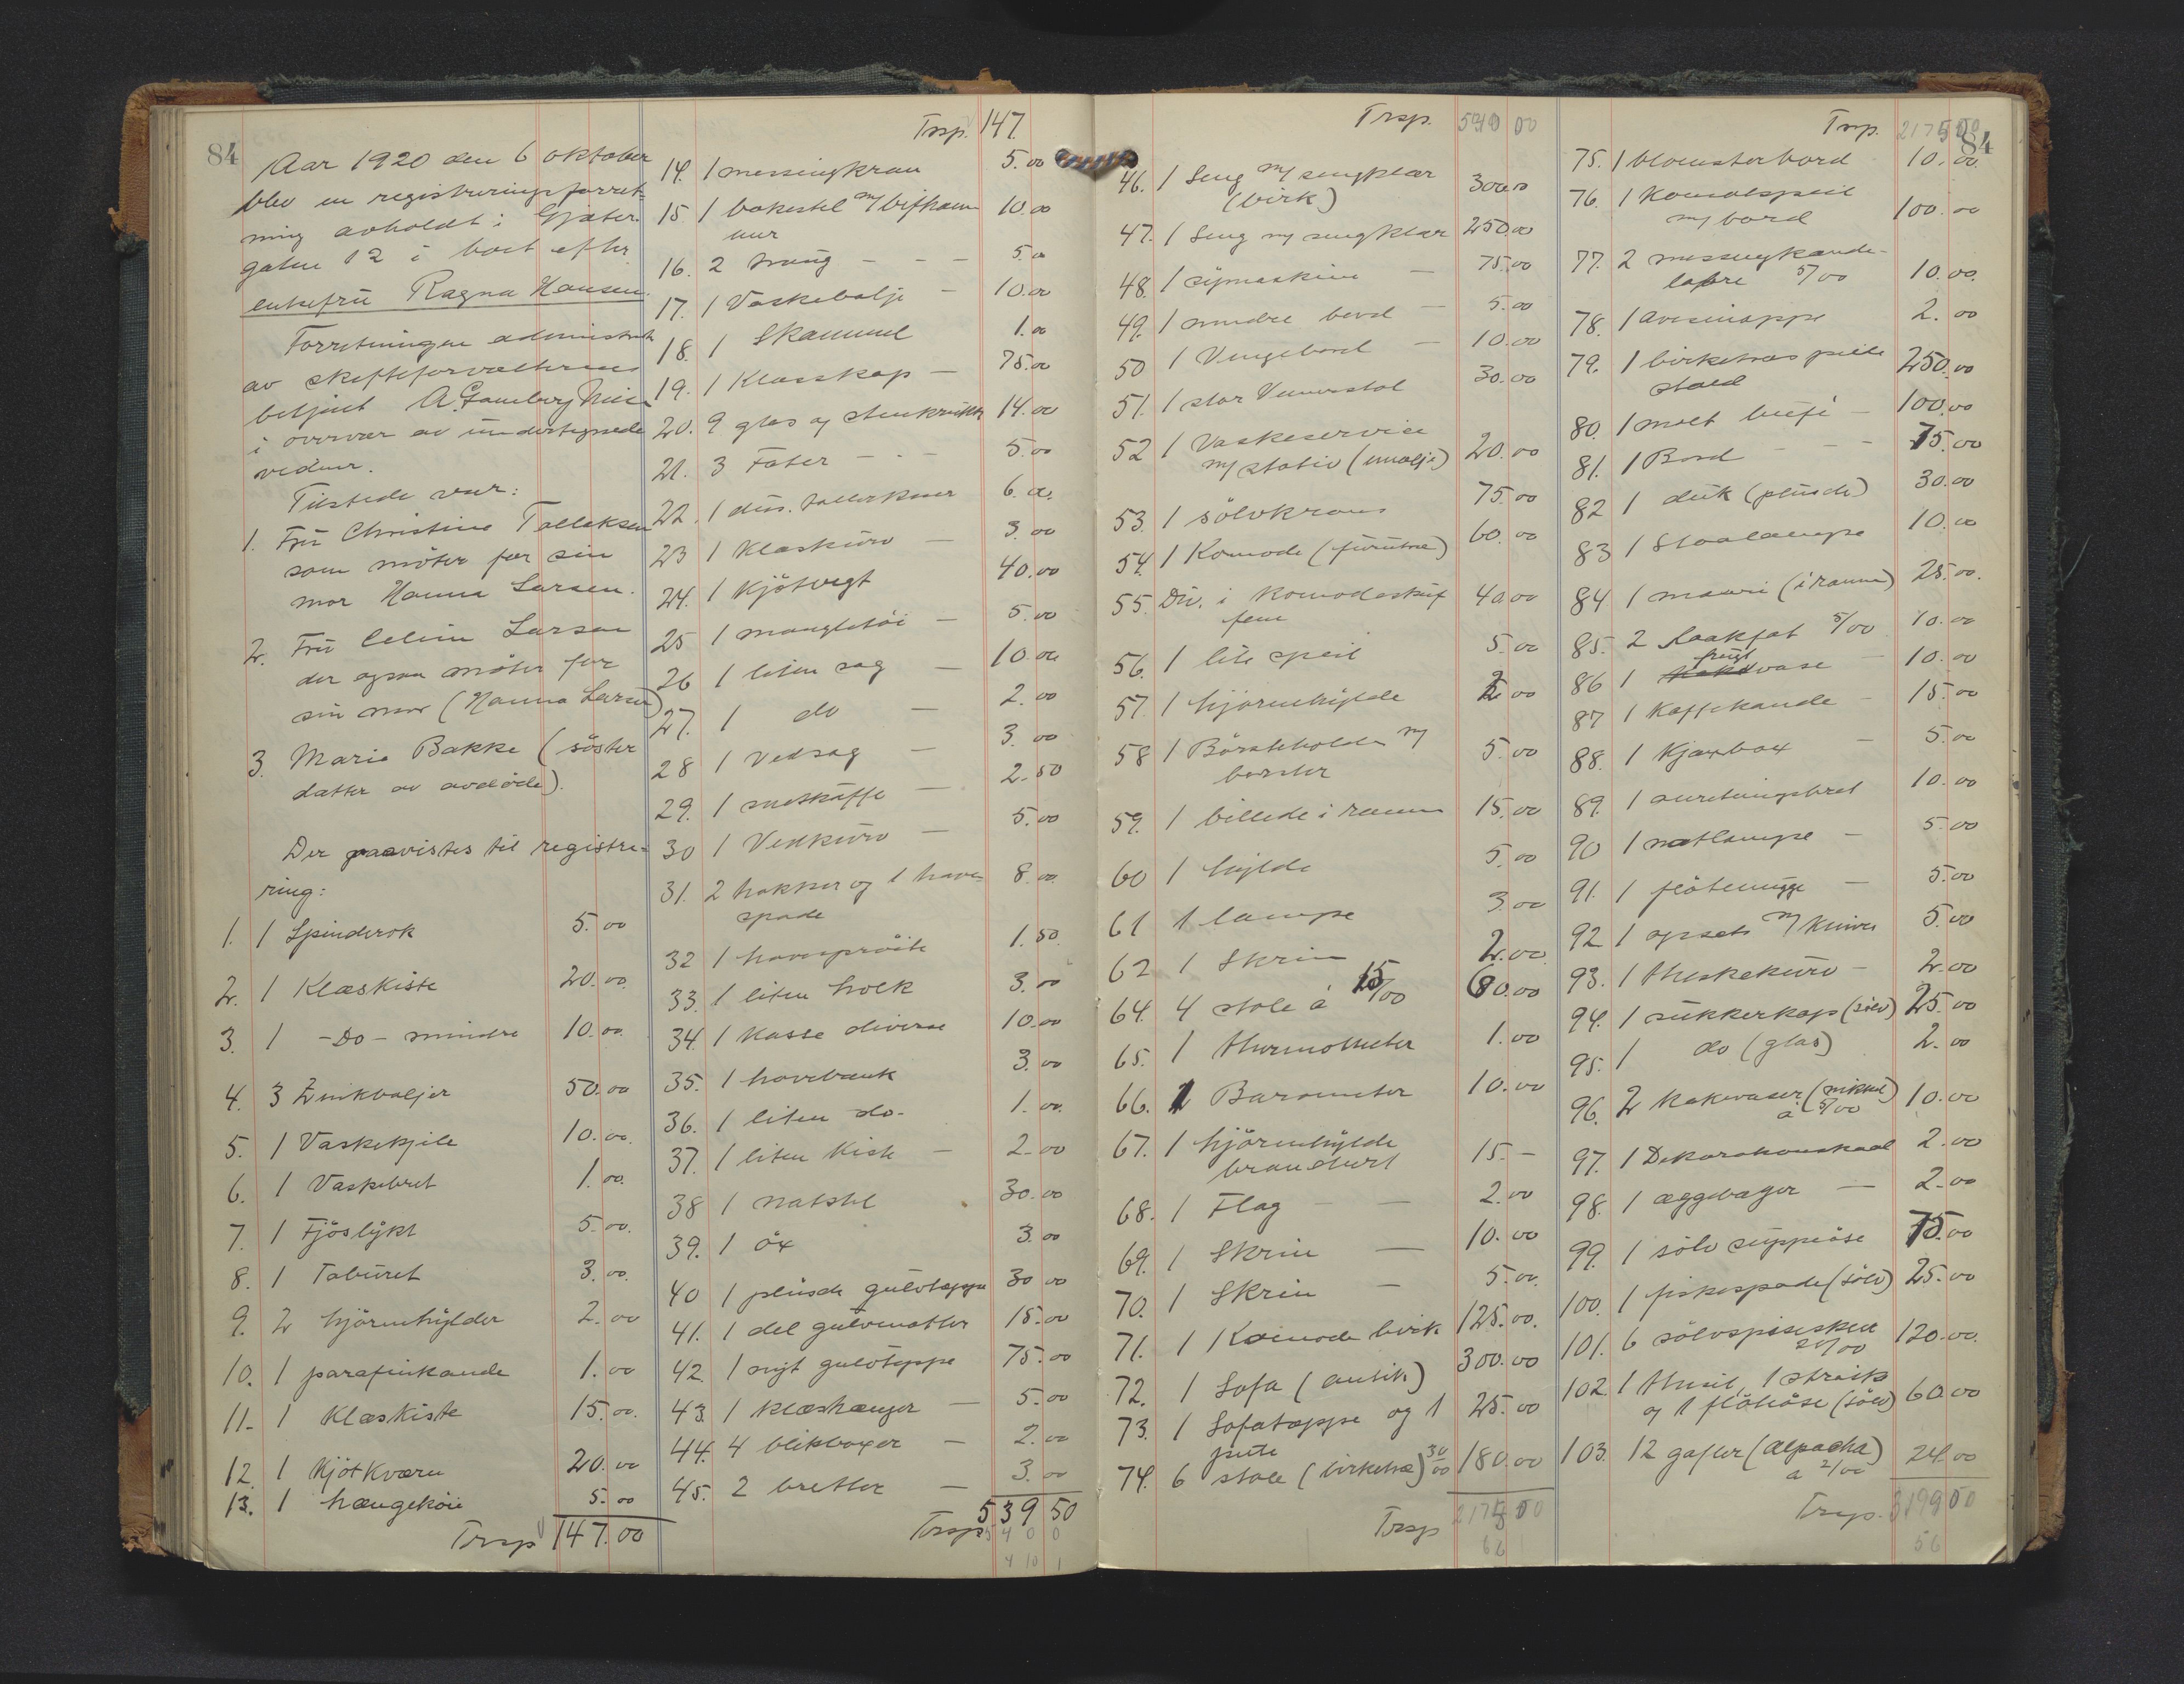 84
Aar 1920 den 6 oktober
blev en registreringsforret-
ning avholdt i Gjæter-
gaten 12 i boet efter
enkefru Ragna Hansen.
Forretningen administrert
av skifteforvalterens
betjent
i overvær av undertegnede
vidner.
Tilstede var:
1. Fru Christine Tollaksen
som møter for sin
mor Hanna Larsen.
2. Fru Celine Larsen
der ogsaa møter for
sin mor (Hanna Larsen)
3. Marie Bakke (søster
datter av avdøde).
Der paavistes til registre-
ring:
1. 1 Spinderok 5.00
2. 1 Klæskiste 20.00
3. 1 -Do- mindre 10.00
4. 3 Zinkbaljer 50.00
5. 1 Vaskekjele 10.00
6. 1 Vaskebret 1.00
7. 1 Fjøslykt 5.00
8. 1 Taburet 3.00
9. 2 hjørnehylder 2.00
10. 1 parafinkande 1.00
11. 1 Klæskiste 15.00
12. 1 Kjøtkværn 20.00
13. 1 hængekøie 5.00
Trsp 147.00
Trsp. 147
14. 1 messingkran 5.00
15 1 bakestel m/
10.00
16. 2 - - - 5.00
17. 1 Vaskebalje - 10.00
18. 1 Skammel 1.00
19. 1 Klæsskap - 75.00
20. 9 glas og stenkrukker 14.00
21. 3 Fater - - - 5.00
22. 1 dus. tallerkener 6.00
23 1 Klæskurv - 3.00
24. 1 Kjøtvegt 40.00
25 1 mangletøi - 5.00
26 1 liten sag - 10.00
27. 1 do - 2.00
28 1 Vedsag - 3.00
29. 1 sneskuffe - 2.50
30 1 Vedkurv - 5.00
31. 2 hakker og 1 have- 8.00
spade
32 1 havesprøite 1.50
33. 1 liten holk 3.00
34. 1 Kasse diverse 10.00
35. 1 havebænk 3.00
36. 1 liten do. 1.00
37. 1 liten Kiste - 2.00
38 1 Natstol 30.00
39. 1 øx 3.00
40 1 plusch gulvteppe 30 00
41. 1 del gulvmatter 15.00
42. 1 nyt gulvteppe 75.00
43. 1 klæshænger - 5.00
44. 4 blikboxer - 2.00
45. 2 bretter - 3.00
Trsp 539 50
540 0
Trsp. 540 00
46. 1 Seng m/ sengklær 300.00
(birk)
47. 1 Seng m/ sengklær 250.00
48. 1 symaskine - 75.00
49. 1 mindre bord - 5.00
50 1 Vengebord - 10.00
51. 1 stor Vennestol 30.00
52 1 Vaskeservice
m/ stativ (emalje) 20.00
53. 1 sølvkrans 75.00
54. 1 Komode (furutræ) 60.00
55. Div. i komodeskuf 40.00
fene
56. 1 lite speil 5.00
57. 1 hjørnehylde 2.00
58 1 Børsteholder m/ 5.00
børster
59. 1 billede i ramme 15.00
60 1 hylde 5.00
61 1 lampe 3.00
62 1 Skrin 2.00
64. 4 stole á 15/00 60.00
65. 1 thermometer 1.00
66. 1 Barometer 10.00
67. 1 hjørnehylde 15.-
brændert
68. 1 Flag - - 2.00
69. 1 Skrin - 10.00
70. 1 Skrin - 5.00
71. 1 Komode birk 125.00
72. 1 Sofa (antik) 300.00
73. 1 Sofateppe og 1 25.00
pute
74. 6 stole (birketræ) 30/00 180.00
Trsp
Trsp.
84
75. 1 blomsterbord 10.00
76. 1 Konsolspeil
m/ bord 100.00
77. 2 messingkande-
labre 5/00 10.00
78. 1 avismappe 2.00
79. 1 birketræs
250.00
80. 1 - 100.00
81. 1 Bord - - 75.00
82 1 duk (plusch) 30.00
83 1 Staalampe 10.00
84 1 maleri (i ramme) 25.00
85. 2 5/00 10.00
86 1 frugtvase - 10.00
87 1 Kaffekande - 15.00
88. 1 Kjæxbox - 5.00
89. 1 anretningsbret 10.00
90 1 natlampe - 5.00
91. 1 fløtemugge - 5.00
92 1 opsats m/ Kniver 5.00
93. 1 theskekurv - 2.00
94. 1 sukkerkop (sølv) 25.00
95. 1 do (glas) 2.00
96. 2 kakevaser (nikkel) 10.00
a 5/00
97. 1 Dekorationsskaal 2.00
98. 1 æggebæger - 2.00
99. 1 sølv suppeøse 75.00
100. 1 fiskespade (sølv) 25.00
101. 6 sølvspiseskeer 120.00
20/00
102. 1 thesil, 1 strøsk
og 1 fløteøse (sølv) 60.00
103. 12 gafler (Alpacha) 24.00
a 2/00
Trsp.